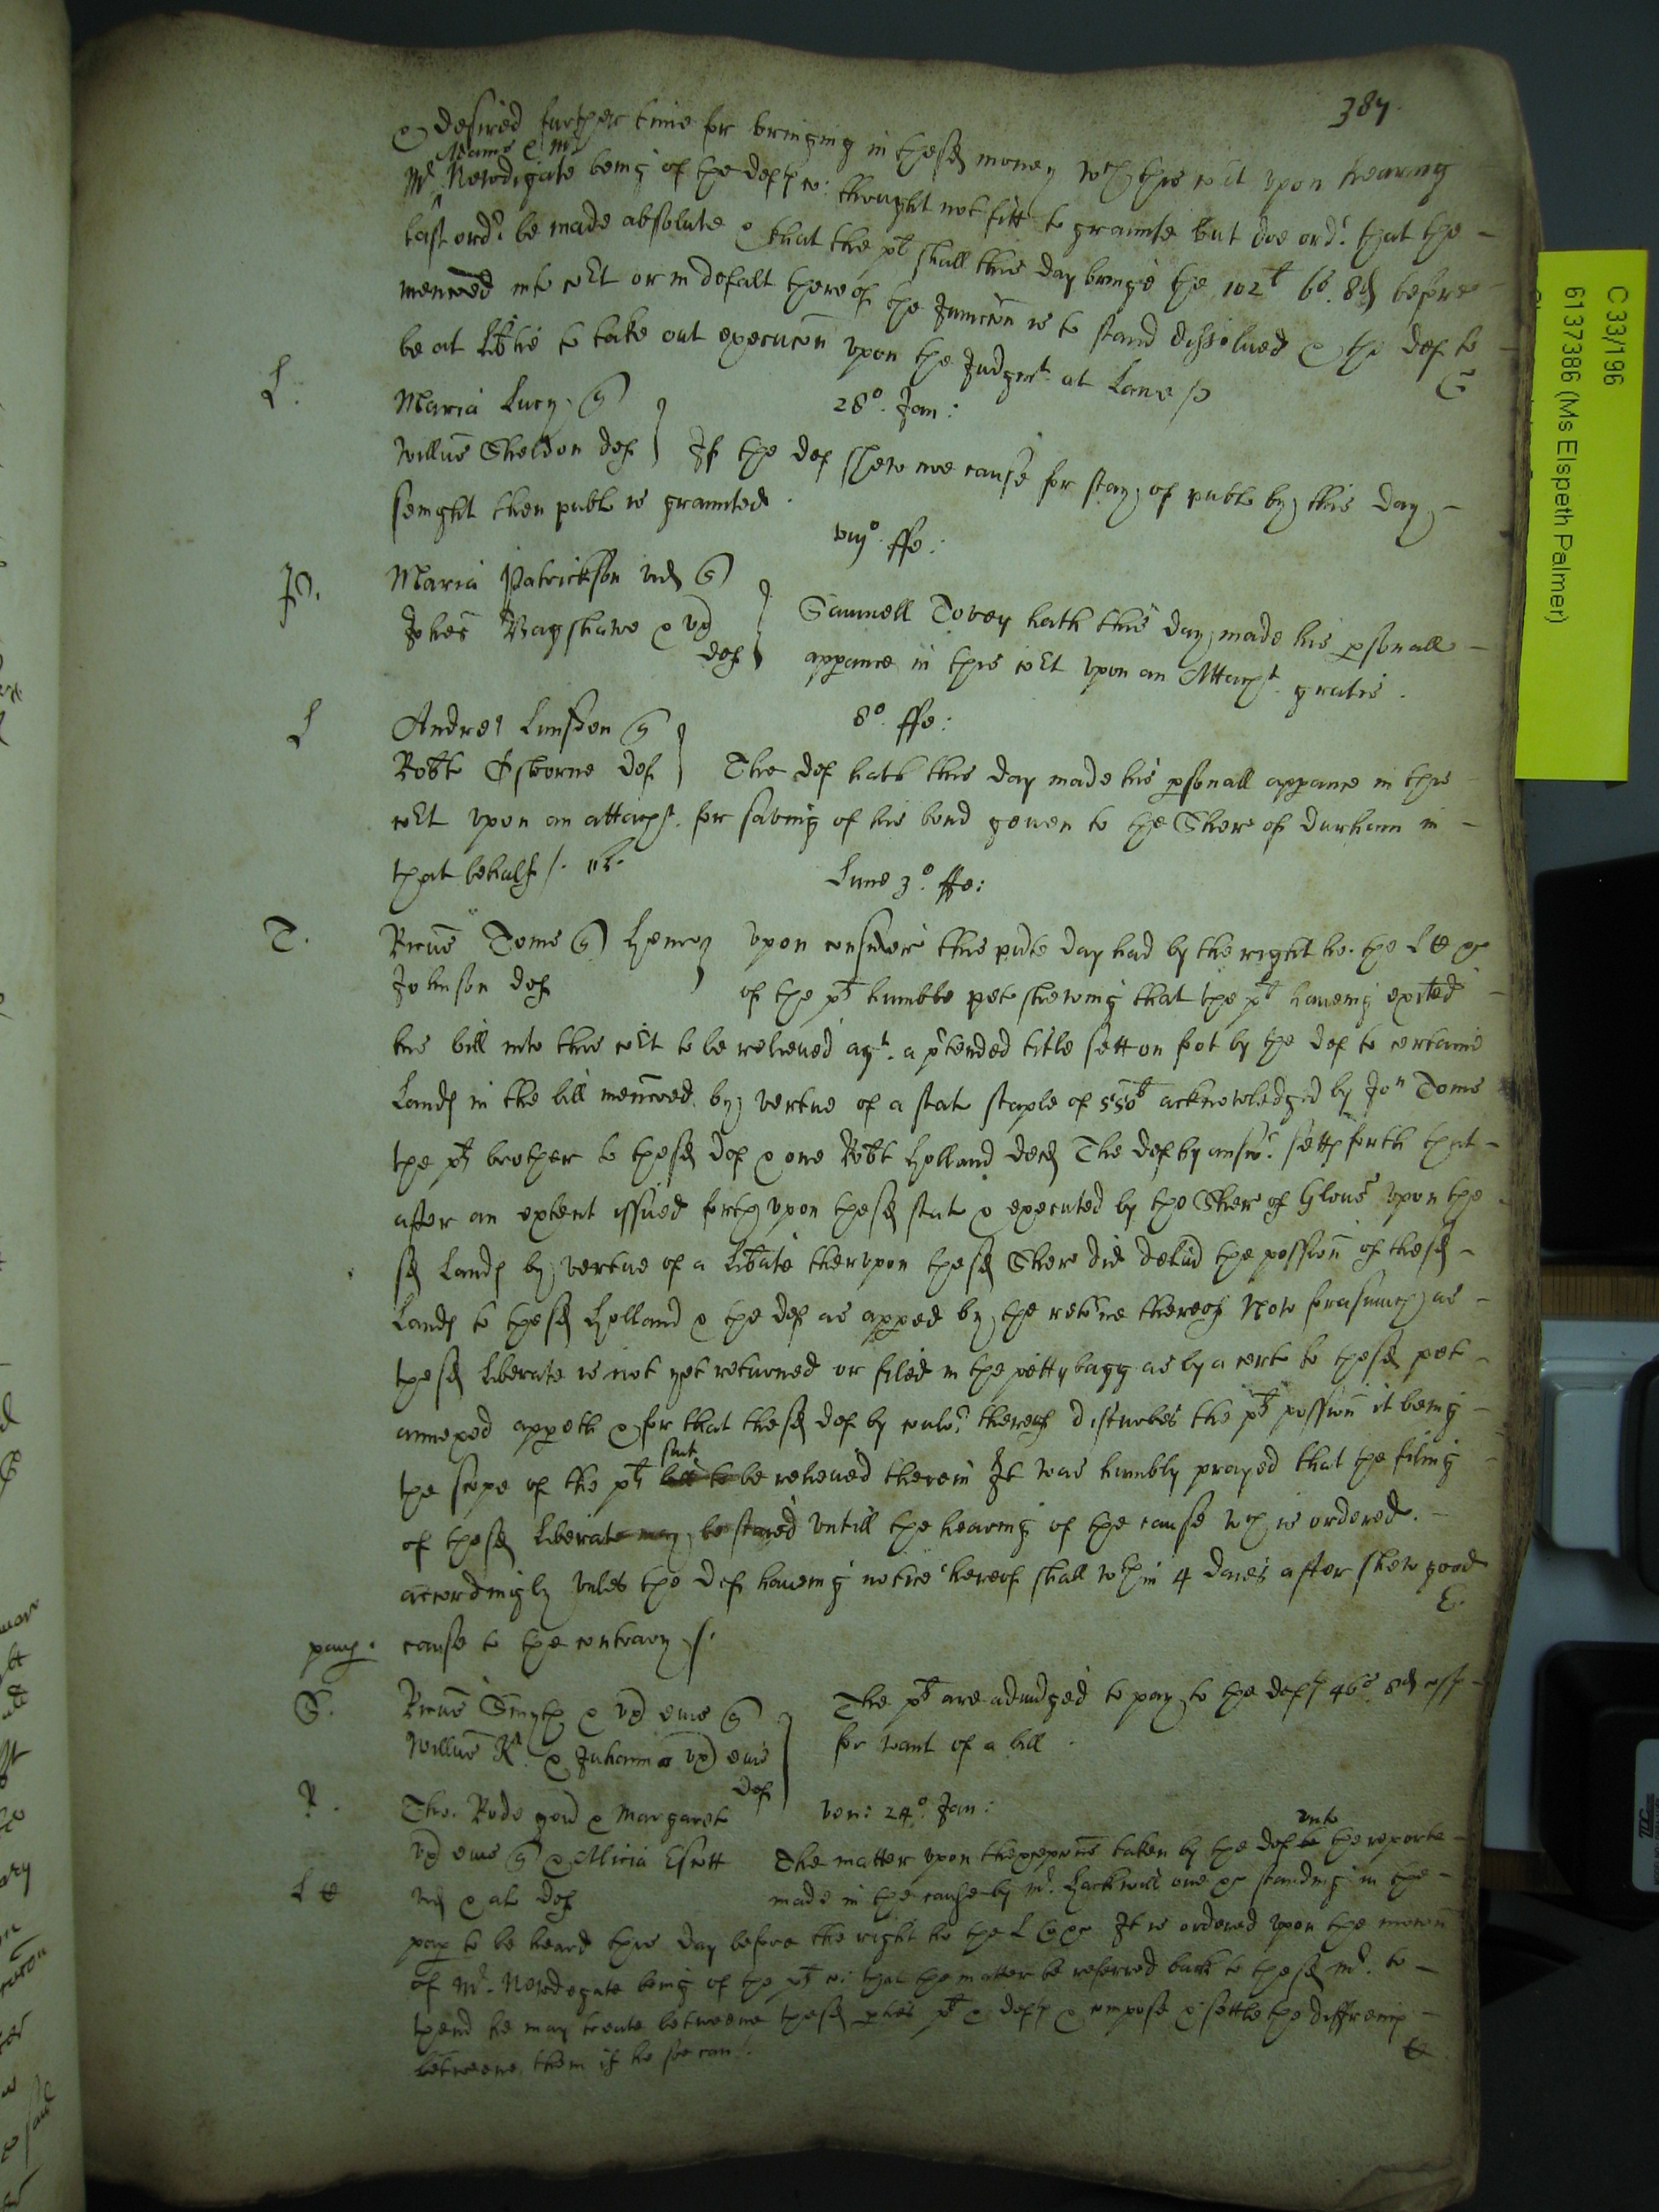 387
& desired further time for bringing in the sd money wch this cort upon hearing
Mr Newdigate being of the deftes co: thought not fitt to graunte but doe ordr. that the
last ordr. be made absolute & that the plt shall this day bringe the 102l 6s. 8d before
menconed into cort or in defalt thereof the Juncton is to stand dissolved & the def to
be at libtie to take out execucon upon the Judgmt. at Lawe
28o. Jan:
L.
Maria Lucy
Willus Sheldon def If the def shew noe cause for stay of publ by this day
senight then publ is graunted.
viijo. ffe:
P.
Maria Patrickson vid
Johes Bagshawe & ux def
Samuell Tovey hath this day made his psonall
appance in this cort upon an Attachmt. gratis.
8o. ffe:
L
Andrei
Robte Osborne def The def hath this day made his psonall appance in this
cort upon an attachmt. for saving of his bond geven to the Sher of Durham in
that behalf
Lune 3o. ffe:
T.
Ricus Toms Henry
Johnson def
upon consideracon this pnte day had by the right ho. the L
of the plt humble pet shewing that the plt haveing exited
his bill into this cort to be releived agt. a ptended title sett on foot by the def to certaine
Lands in the bill menconed by vertue of a stat staple of 550l acknowledged by Jon Toms
the plts brother to the sd def & one Robt Holland decd The def by answr. setts forth that
after an extent issued forth upon the sd stat & executed by the Sher of Glouc upon the
sd Lands by vertue of a Libate therupon the sd Sher did delivd the possion of the sd
Lands to the sd Holland & the def as apped by the retorne thereof Now forasmuch as
the sd Liberate is not yet returned or filed in the pettybagg as by a cert to the sd pet
annexed appeth & for that the sd def by coulor thereof disturbes the plt possion it being
the scope of the plts suit to be releived therein It was humbly prayed that the filing
of the sd Liberate may be stayed untill the hearing of the cause wch is ordered.
accordingly unles the def haveing notice hereof shall wthin 4 daies after shew good
E.
cause to the contrary
S.
Ricus Smyth & ux eius
Willus & Juhanna ux eius
def
The plts are adiudged to pay to the defts 46s 8d
for want of a bill.
R.
Ven: 24o. Jan:
Tho. Rode & Margaret
ux eius & Alicia Escott
vid & al def
The matter upon the excepcons taken by the def unto the reporte
made in the cause by mr. Hackwill one &c standing in the
pap to be heard this day before the right ho the L &c It is ordered upon the mocon
of Mr. Newdegate being of the plts co: that the matter be referred back to the sd mr. to
thend he may treate betweene the sd pties plt & defts & compose & settle the diffrences
betweene them if he soe can
C 33/196
6137386 (Ms Elspeth Palmer)